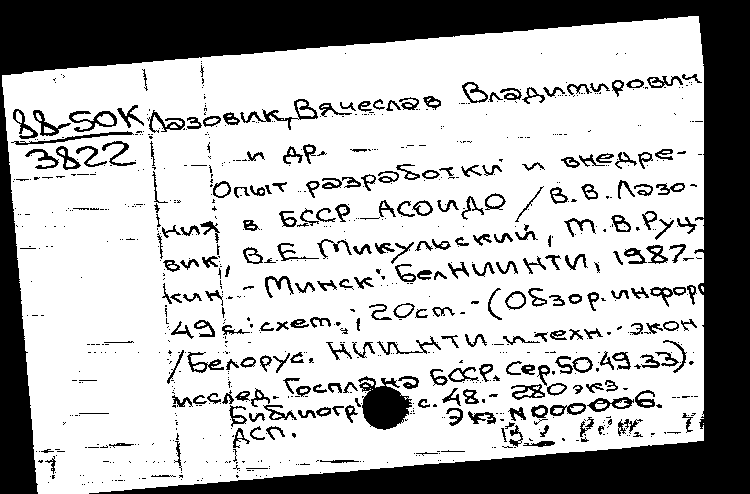 88-50К Лазовик, Вячеслав Владимирович
3822 и др.
Опыт разработки и внедре-
ния в БССР АСОИДО / В.В. Лазо-
вик, В.Е. Микульский, М.В. Руц-
кин. - Минск: БелНИИНТИ, 1987. -
49 с.: схем.; 20 см. - (Обзор. информ
/ Белорус. НИИ НТИ и техн.-экон.
исслед. Госплана БССР. Сер. 50.49.33).
Библиогр. с. 48. - 280 экз.
Экз. N 000006.
ДСП.